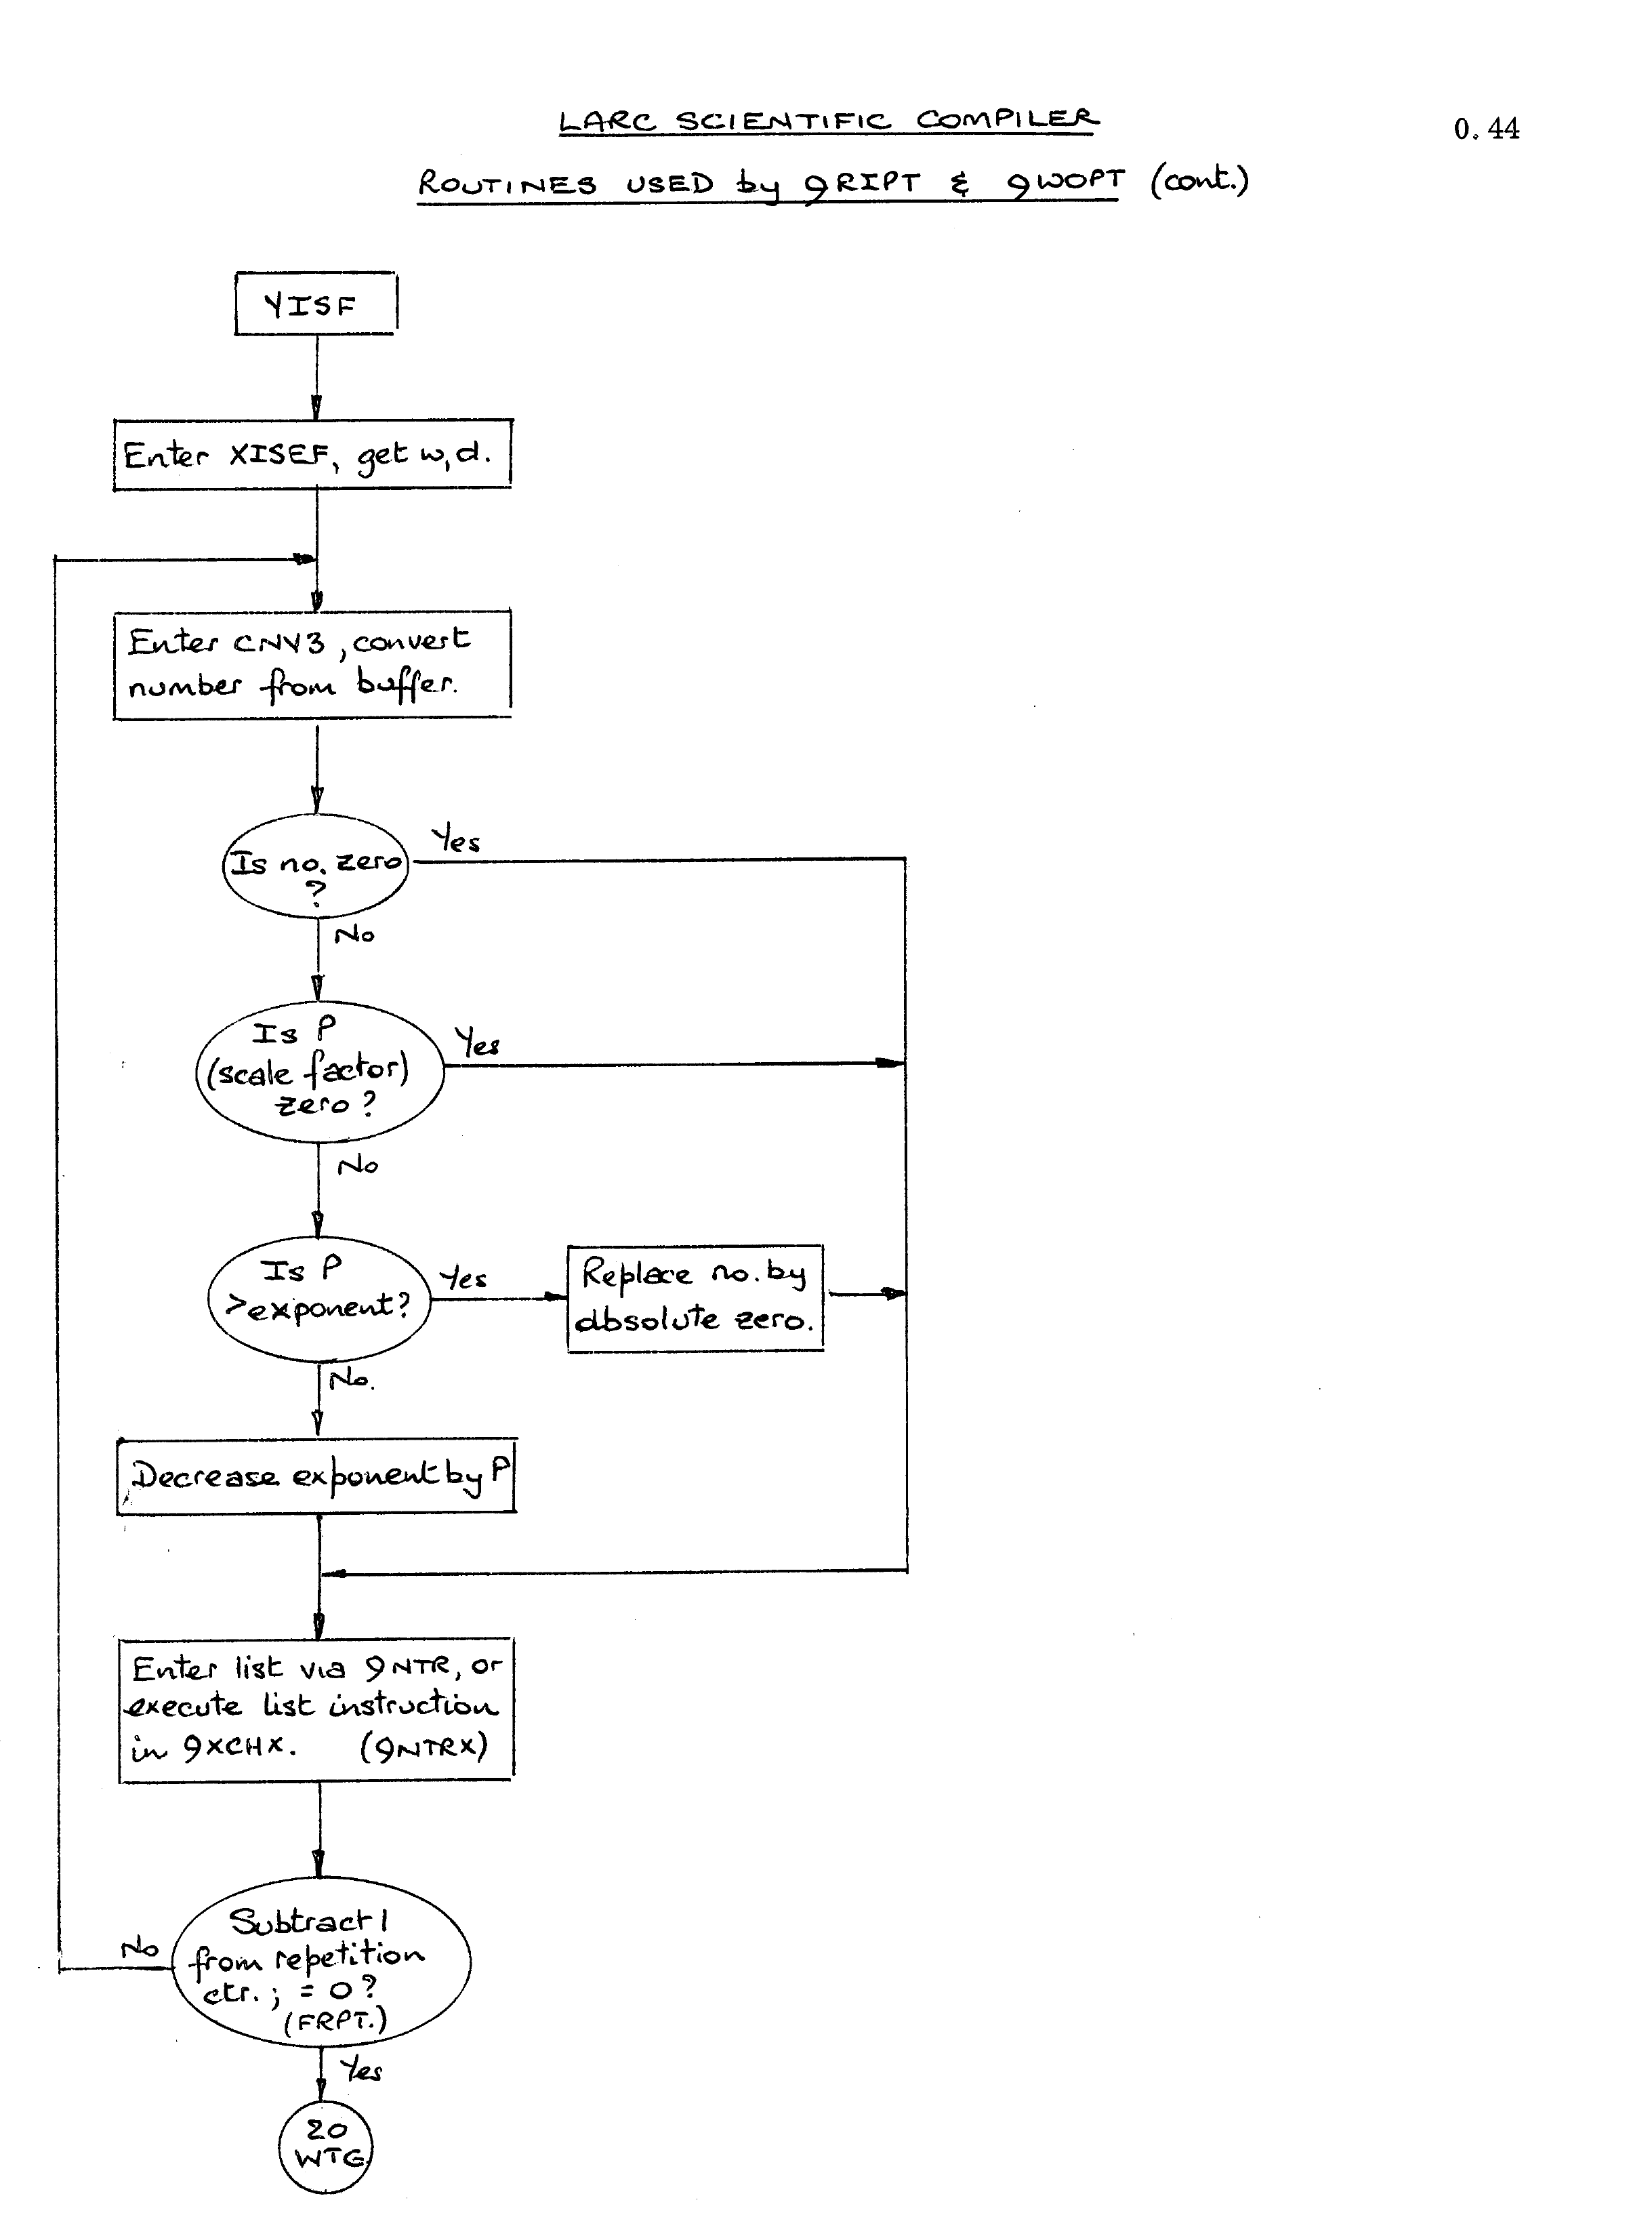 LARC SCIENTIFIC COMPILER
0.44
ROUTINES USED by 9RIPT & 9WOPT (cont.)
YISF
Enter XISEF, get w,d.
Enter CNV3, convert
number from buffer.
Is no. zero
?
Yes
No
Is P
(scale factor)
zero?
Yes
No
Is P
>exponent?
Yes
Replace no. by
absolute zero.
No.
Decrease exponent by P
Enter list via 9NTR, or
execute list instruction
in 9XCHX. (9NTRX)
Subtract 1
from repetition
ctr.; = 0?
(FRPT.)
No
Yes
20
WTG